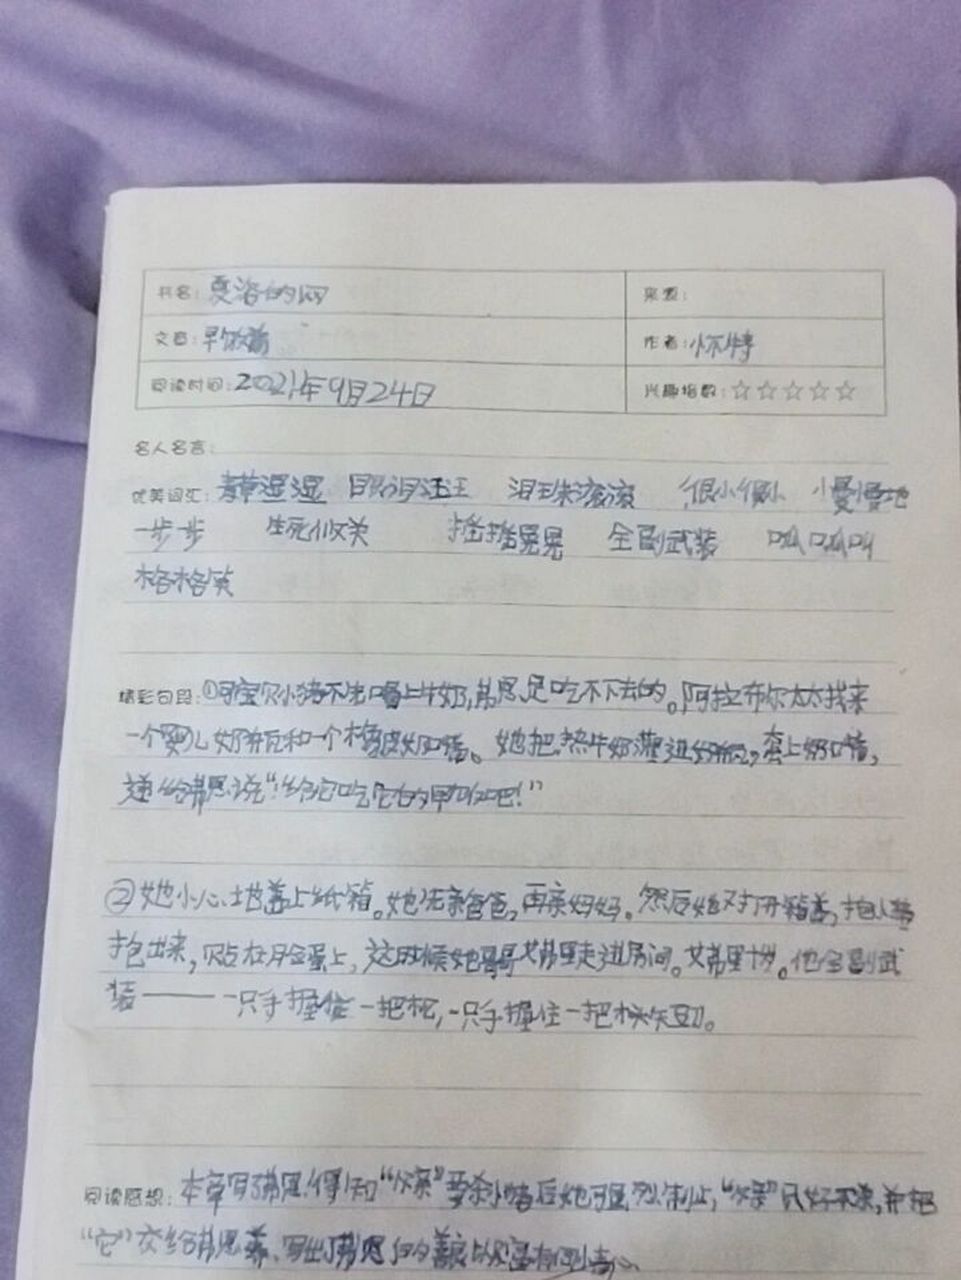 书名: 夏洛的网
来源:
文章: 早饭前
作者: 怀特
阅读时间: 2021年9月24日
兴趣指数: ☆☆☆☆☆
名人名言:
优美词汇: 青草湿湿 眼泪汪汪 泪珠滚滚 很小很小 慢慢地
一步步 生死攸关 摇摇晃晃 全副武装 呱呱叫
格格笑
精彩句段: ①可宝贝小猪不先喝上牛奶,弗恩是吃不下去的。阿拉布尔太太找来
一个婴儿奶瓶和一个橡皮奶嘴。她把热牛奶灌进奶瓶,套上奶嘴,
递给弗恩说“给它吃它的早饭吧!”
②她小心地盖上纸箱。她先亲爸爸,再亲妈妈。然后她又打开箱盖,把小猪
抱出来,贴在脸蛋上,这时候她哥哥艾弗里走进房间。艾弗里十岁。他全副武
装——一只手握住一把枪,一只手握住一把木头匕首。
阅读感想: 本章写弗恩得知“父亲”要杀小猪后她强烈制止,“父亲”只好不杀,并把
“它”交给弗恩养、写出了弗恩的善良以及富有同情心。